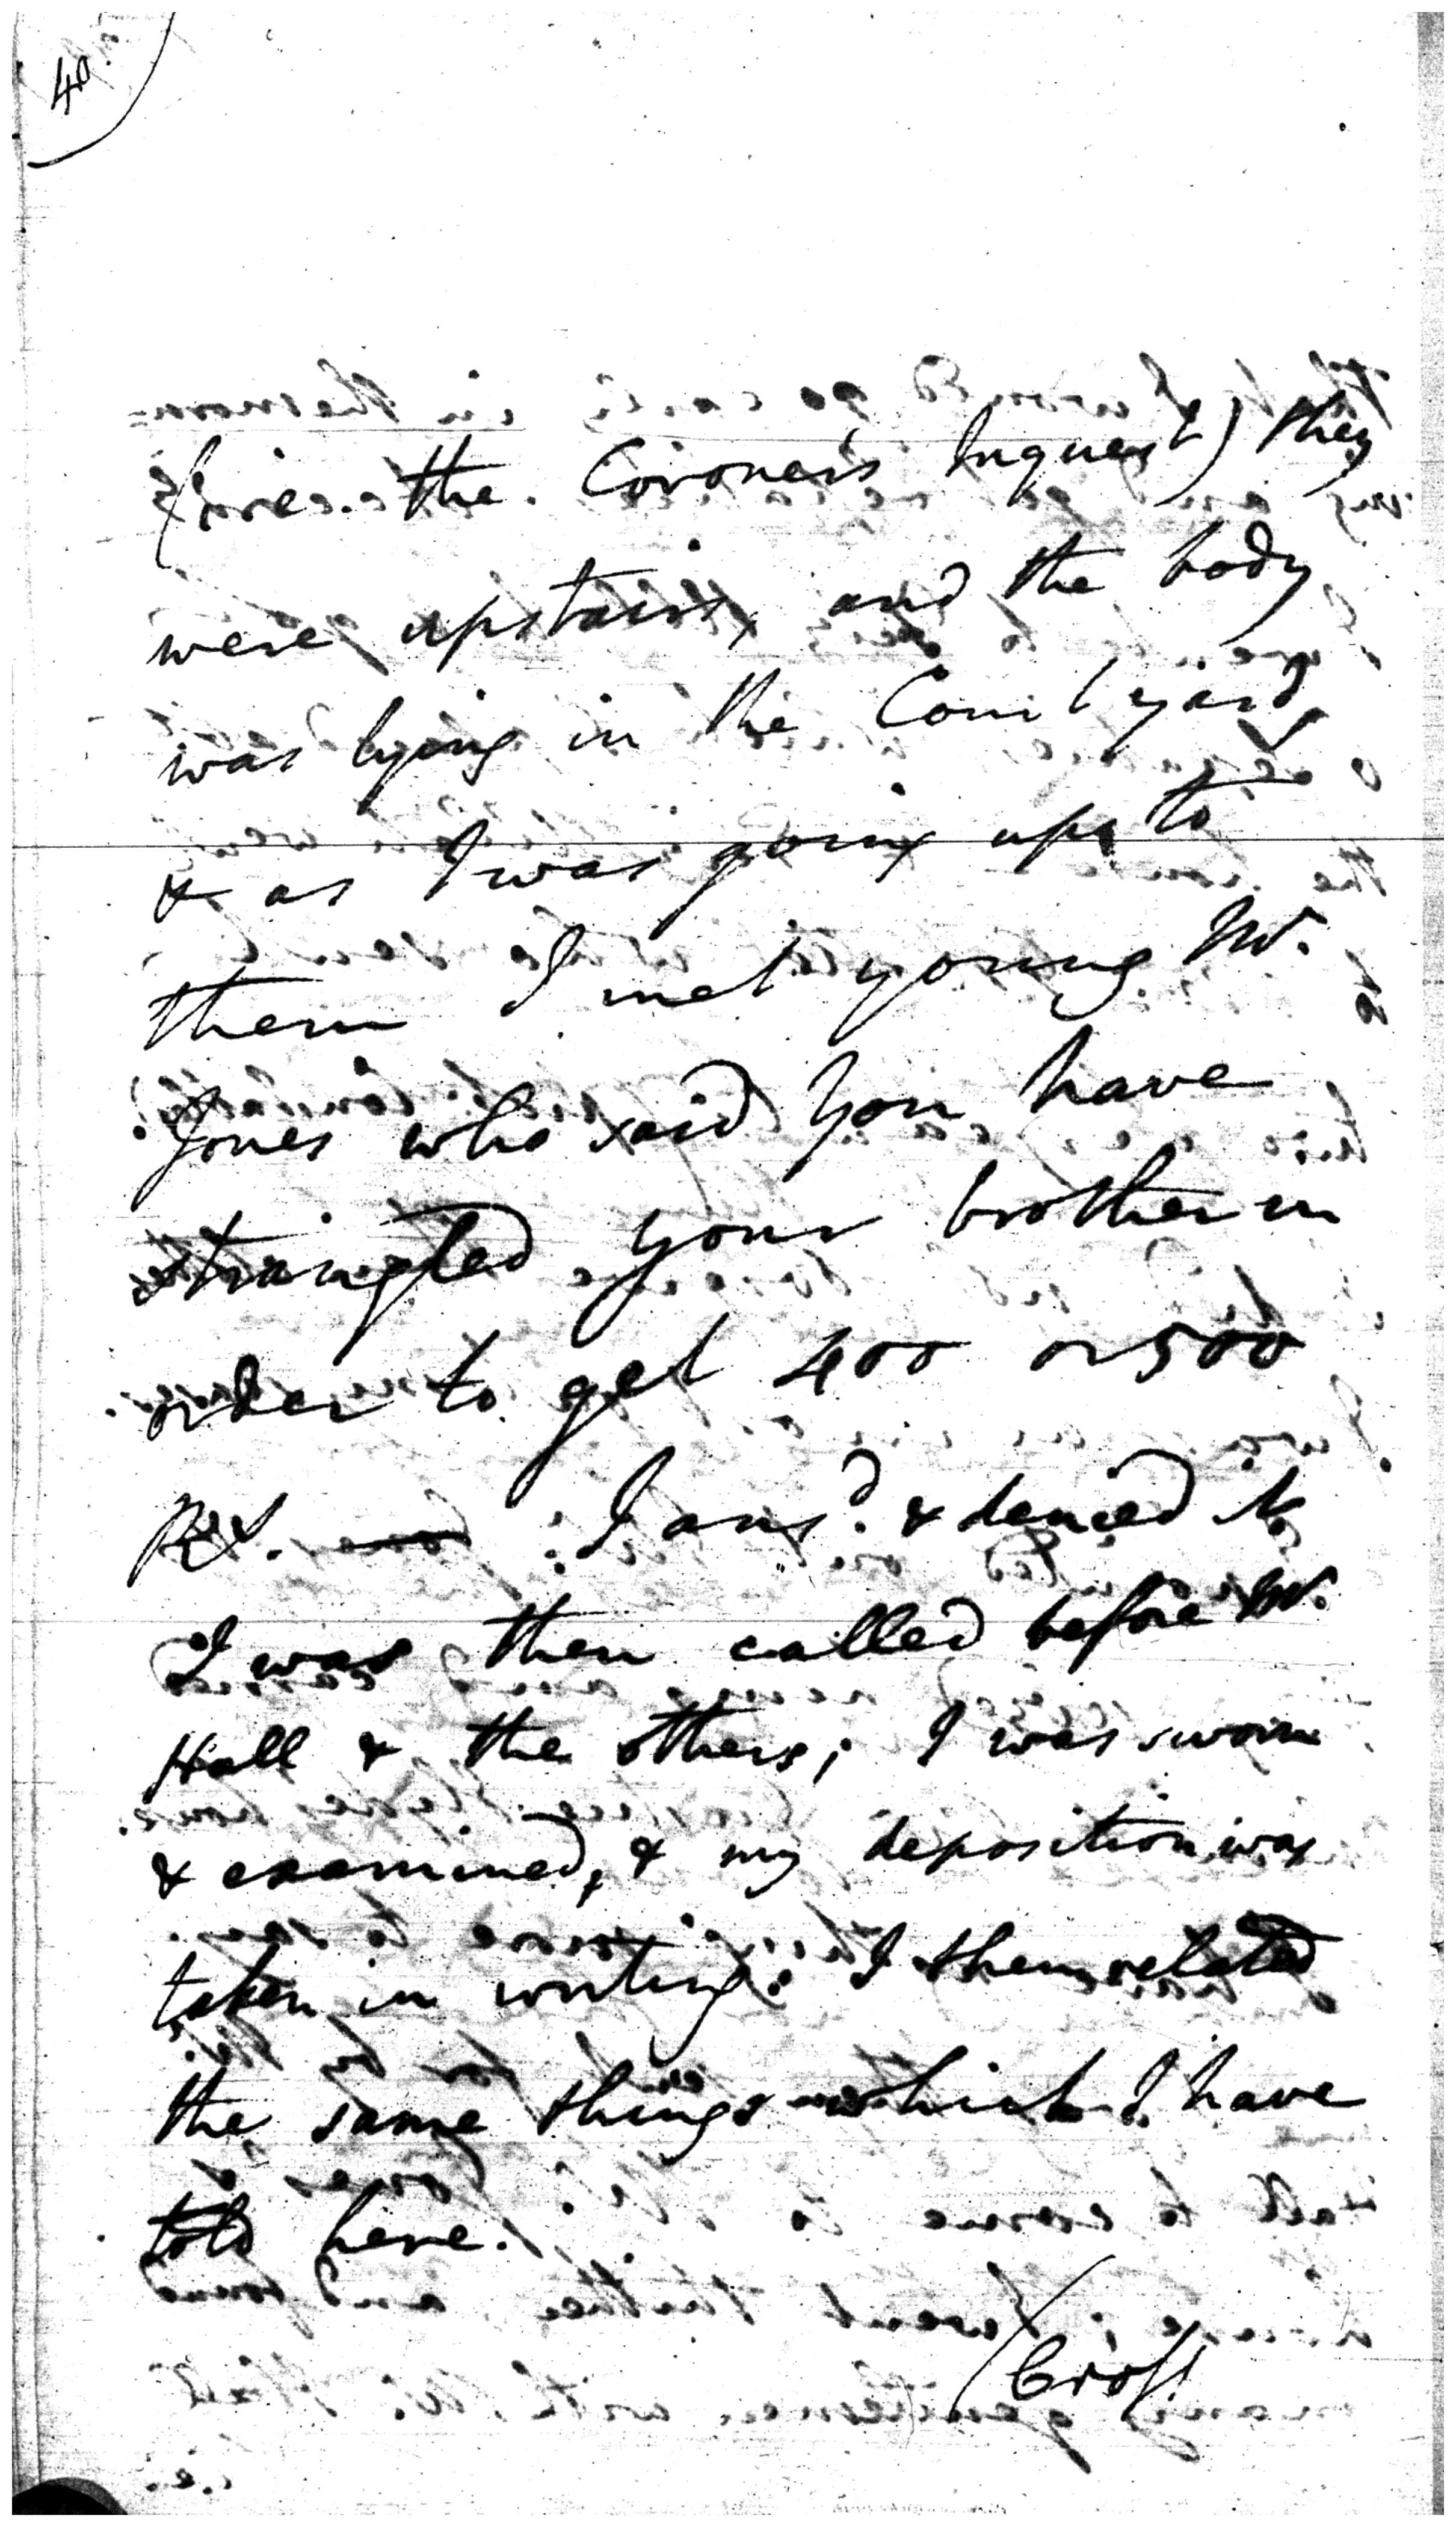 40.
(i.e. the Coroners Inquest) they
were upstairs, and the body
was lying in the Court yard,
& as I was going up to
them I met young Mr.
Jones who said You have
strangled your brother in
order to get 400 or 500
I ansd. & denied it
I was then called before Mr.
Hall & the others; I was sworn
& examined, & my deposition was
taken in writing: I then related
the same things which I have
told here.
(Cross